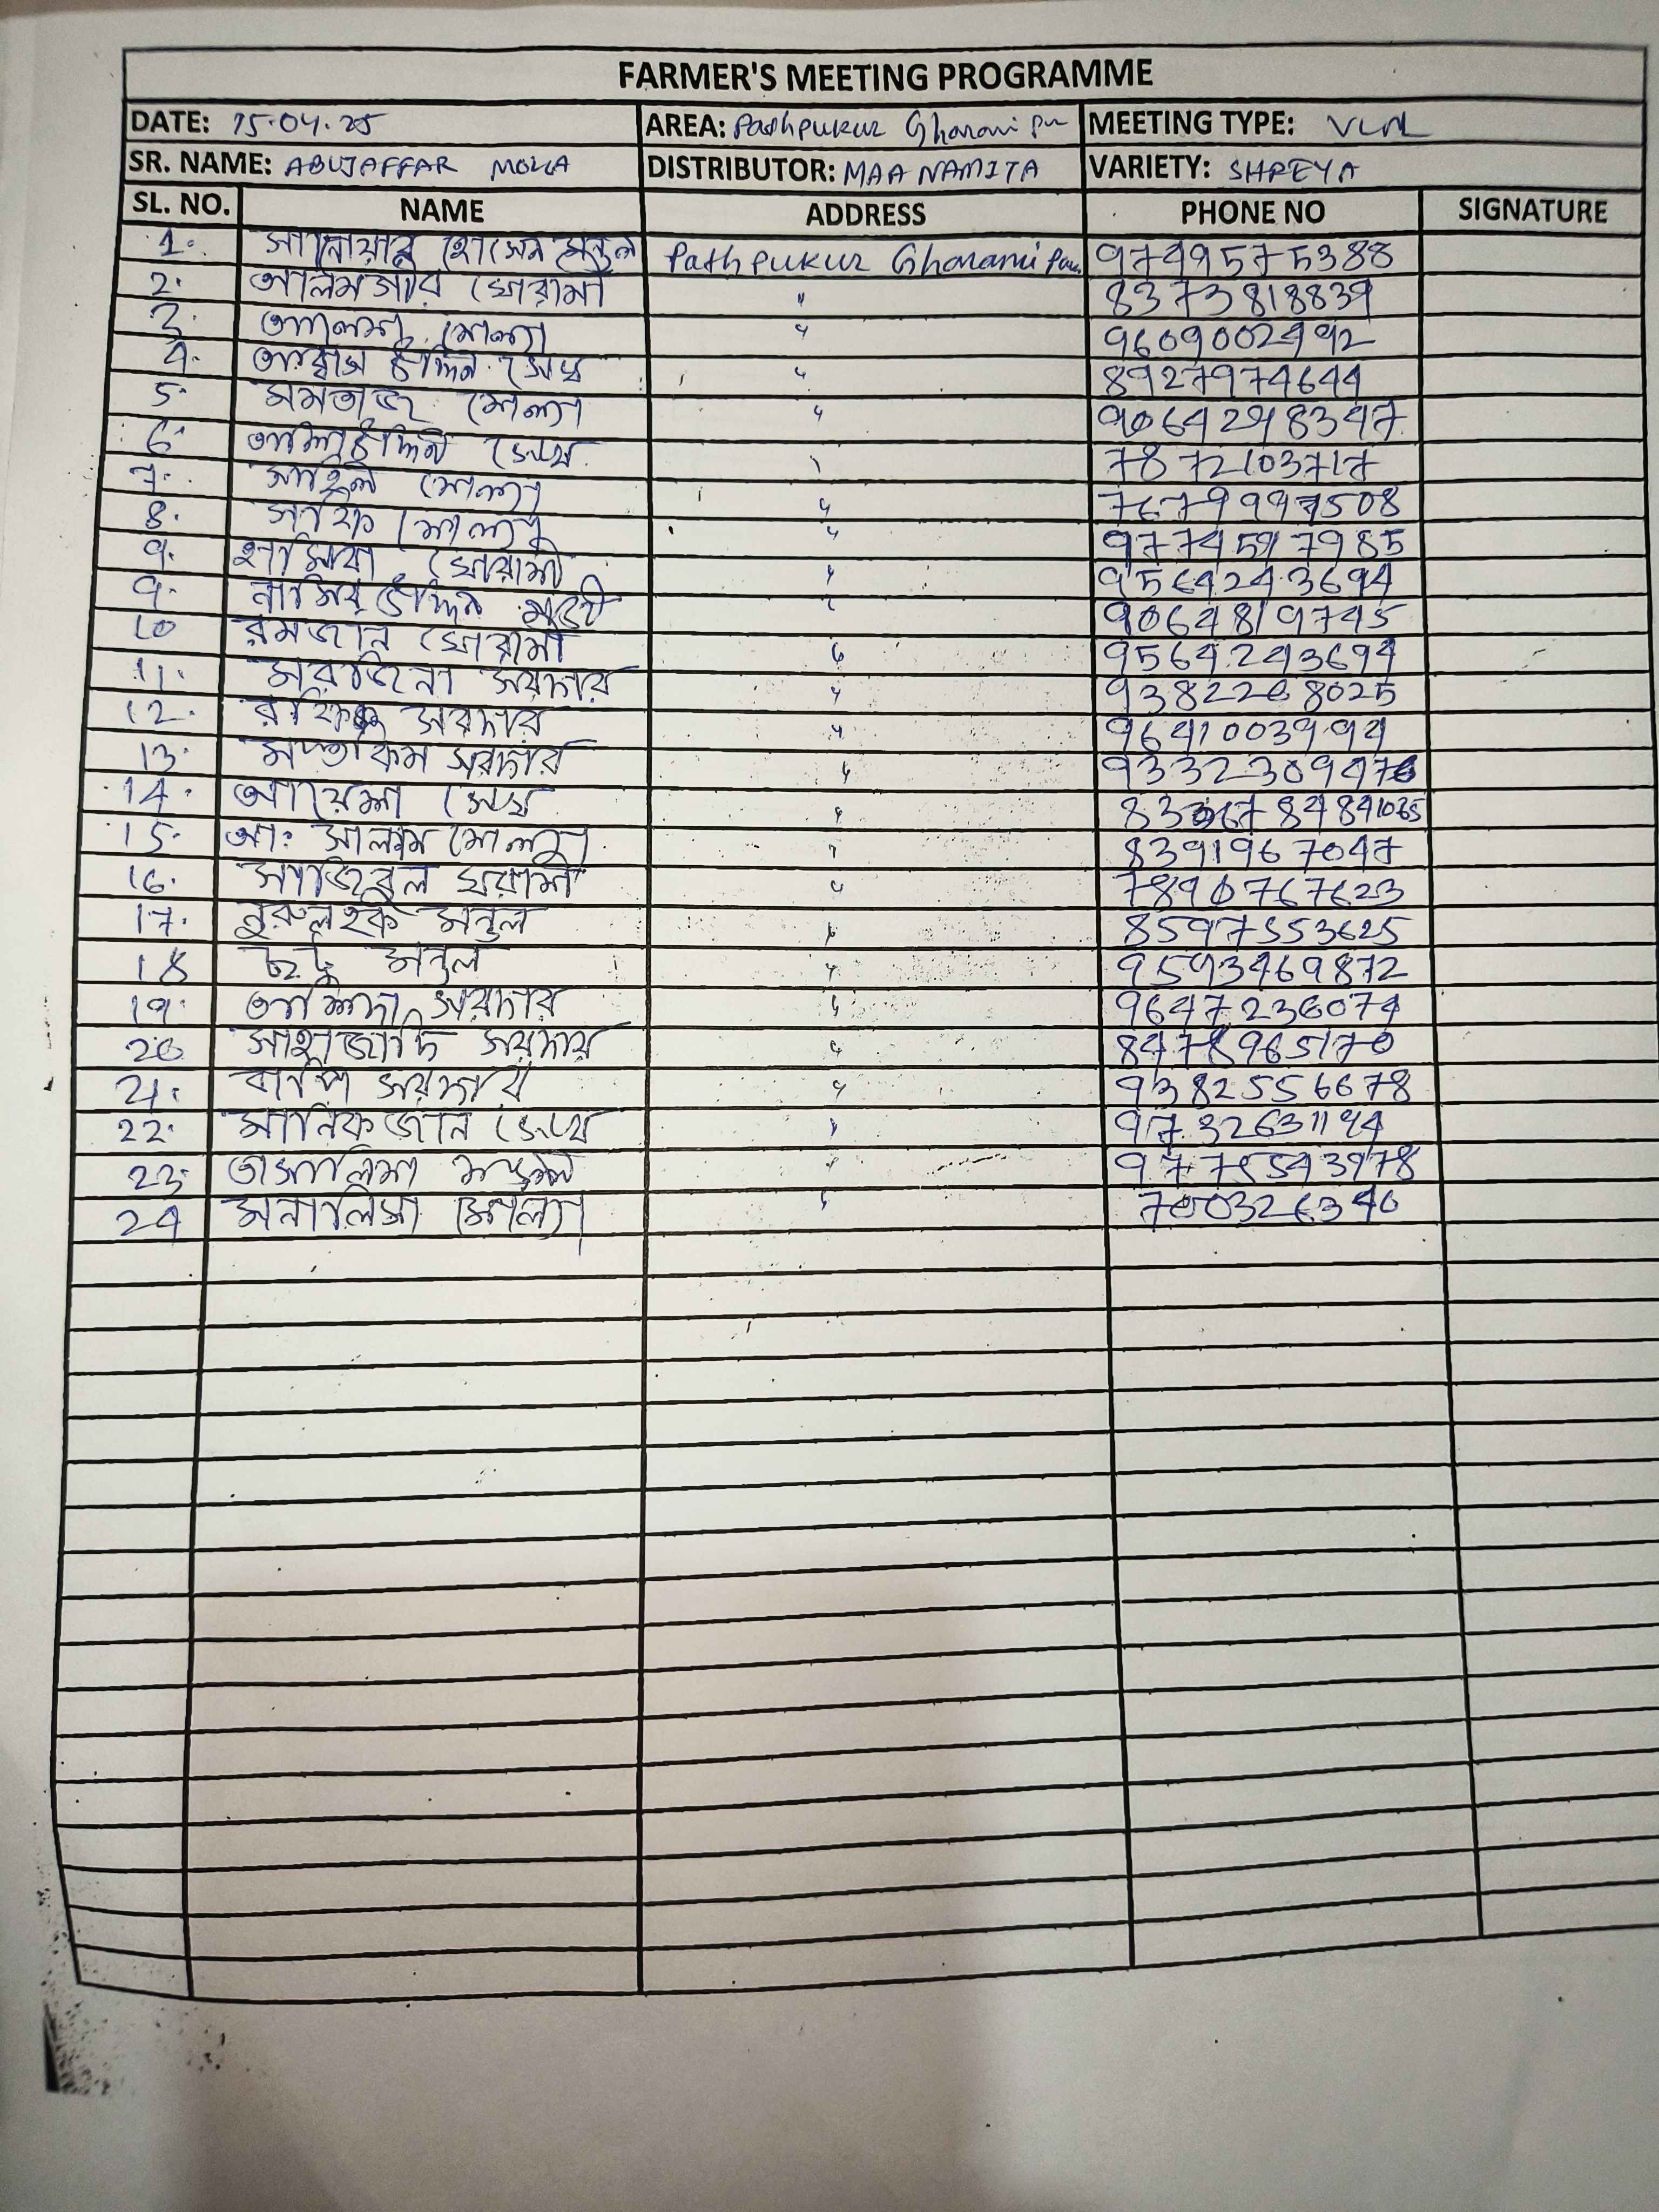 FARMER'S MEETING PROGRAMME
DATE: 15.04.25 AREA: Pathpukur Gharami Para MEETING TYPE: VLM
SR. NAME: ABUJAFFAR MOLLA DISTRIBUTOR: MAA NAMITA VARIETY: SHREYA
SL. NO. NAME ADDRESS PHONE NO SIGNATURE
1. সানোয়ার হোসেন মন্ডল Pathpukur Gharami Para 9749575388
2. আলমগীর ঘোরামী " 8373818839
3. মোল্যা " 9609002492
4. উদ্দিন সেখ " 8927974644
5. মমতাজ মোল্যা " 9064248347
6. সেখ " 7872103717
7. সাহিল মোল্যা " 7679999508
8. মোল্যা " 9774597985
9. হাসিবা ঘোরামী " 9564243694
9. নাসির উদ্দিন " 9064819745
10 রমজান ঘোরামী " 9564243694
11. সরজিনা সরদার " 9382268025
12. সরদার "
13. মুস্তাকিম সরদার " 9332309476
14. আয়েশা সেখ "
15. আঃ সালাম মোল্যা " 8391967047
16. সাজিরুল ঘরামী " 7890767623
17. নুরুলহক মন্ডল " 8597553625
18 মন্ডল " 9593469872
19. সরদার " 9647236074
20 সাহাজাদি সরদার " 8478965170
21. বাপি সরদার " 9382556678
22. মানিকজান সেখ "
23. তসলিমা "
24 মনালিসা মোল্যা " 700326340